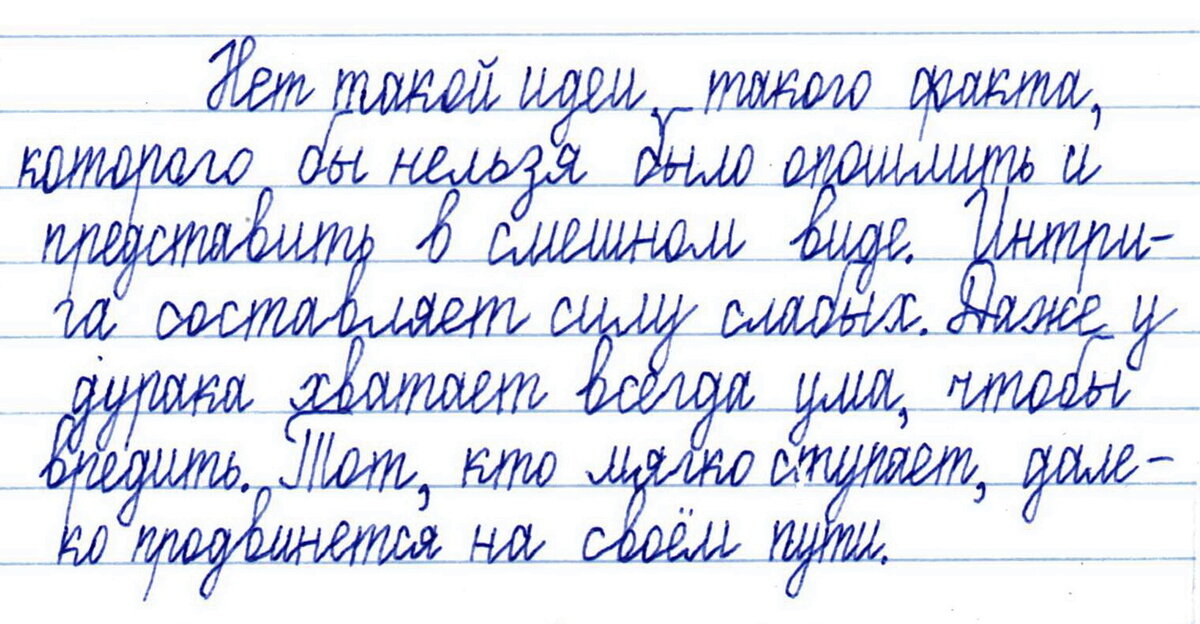 Нет такой идеи, такого факта,
которого бы нельзя было опошлить и
представить в смешном виде. Интри-
га составляет силу слабых. Даже у
дурака хватает всегда ума, чтобы
вредить. Тот, кто мягко ступает, дале-
ко продвинется на своём пути.